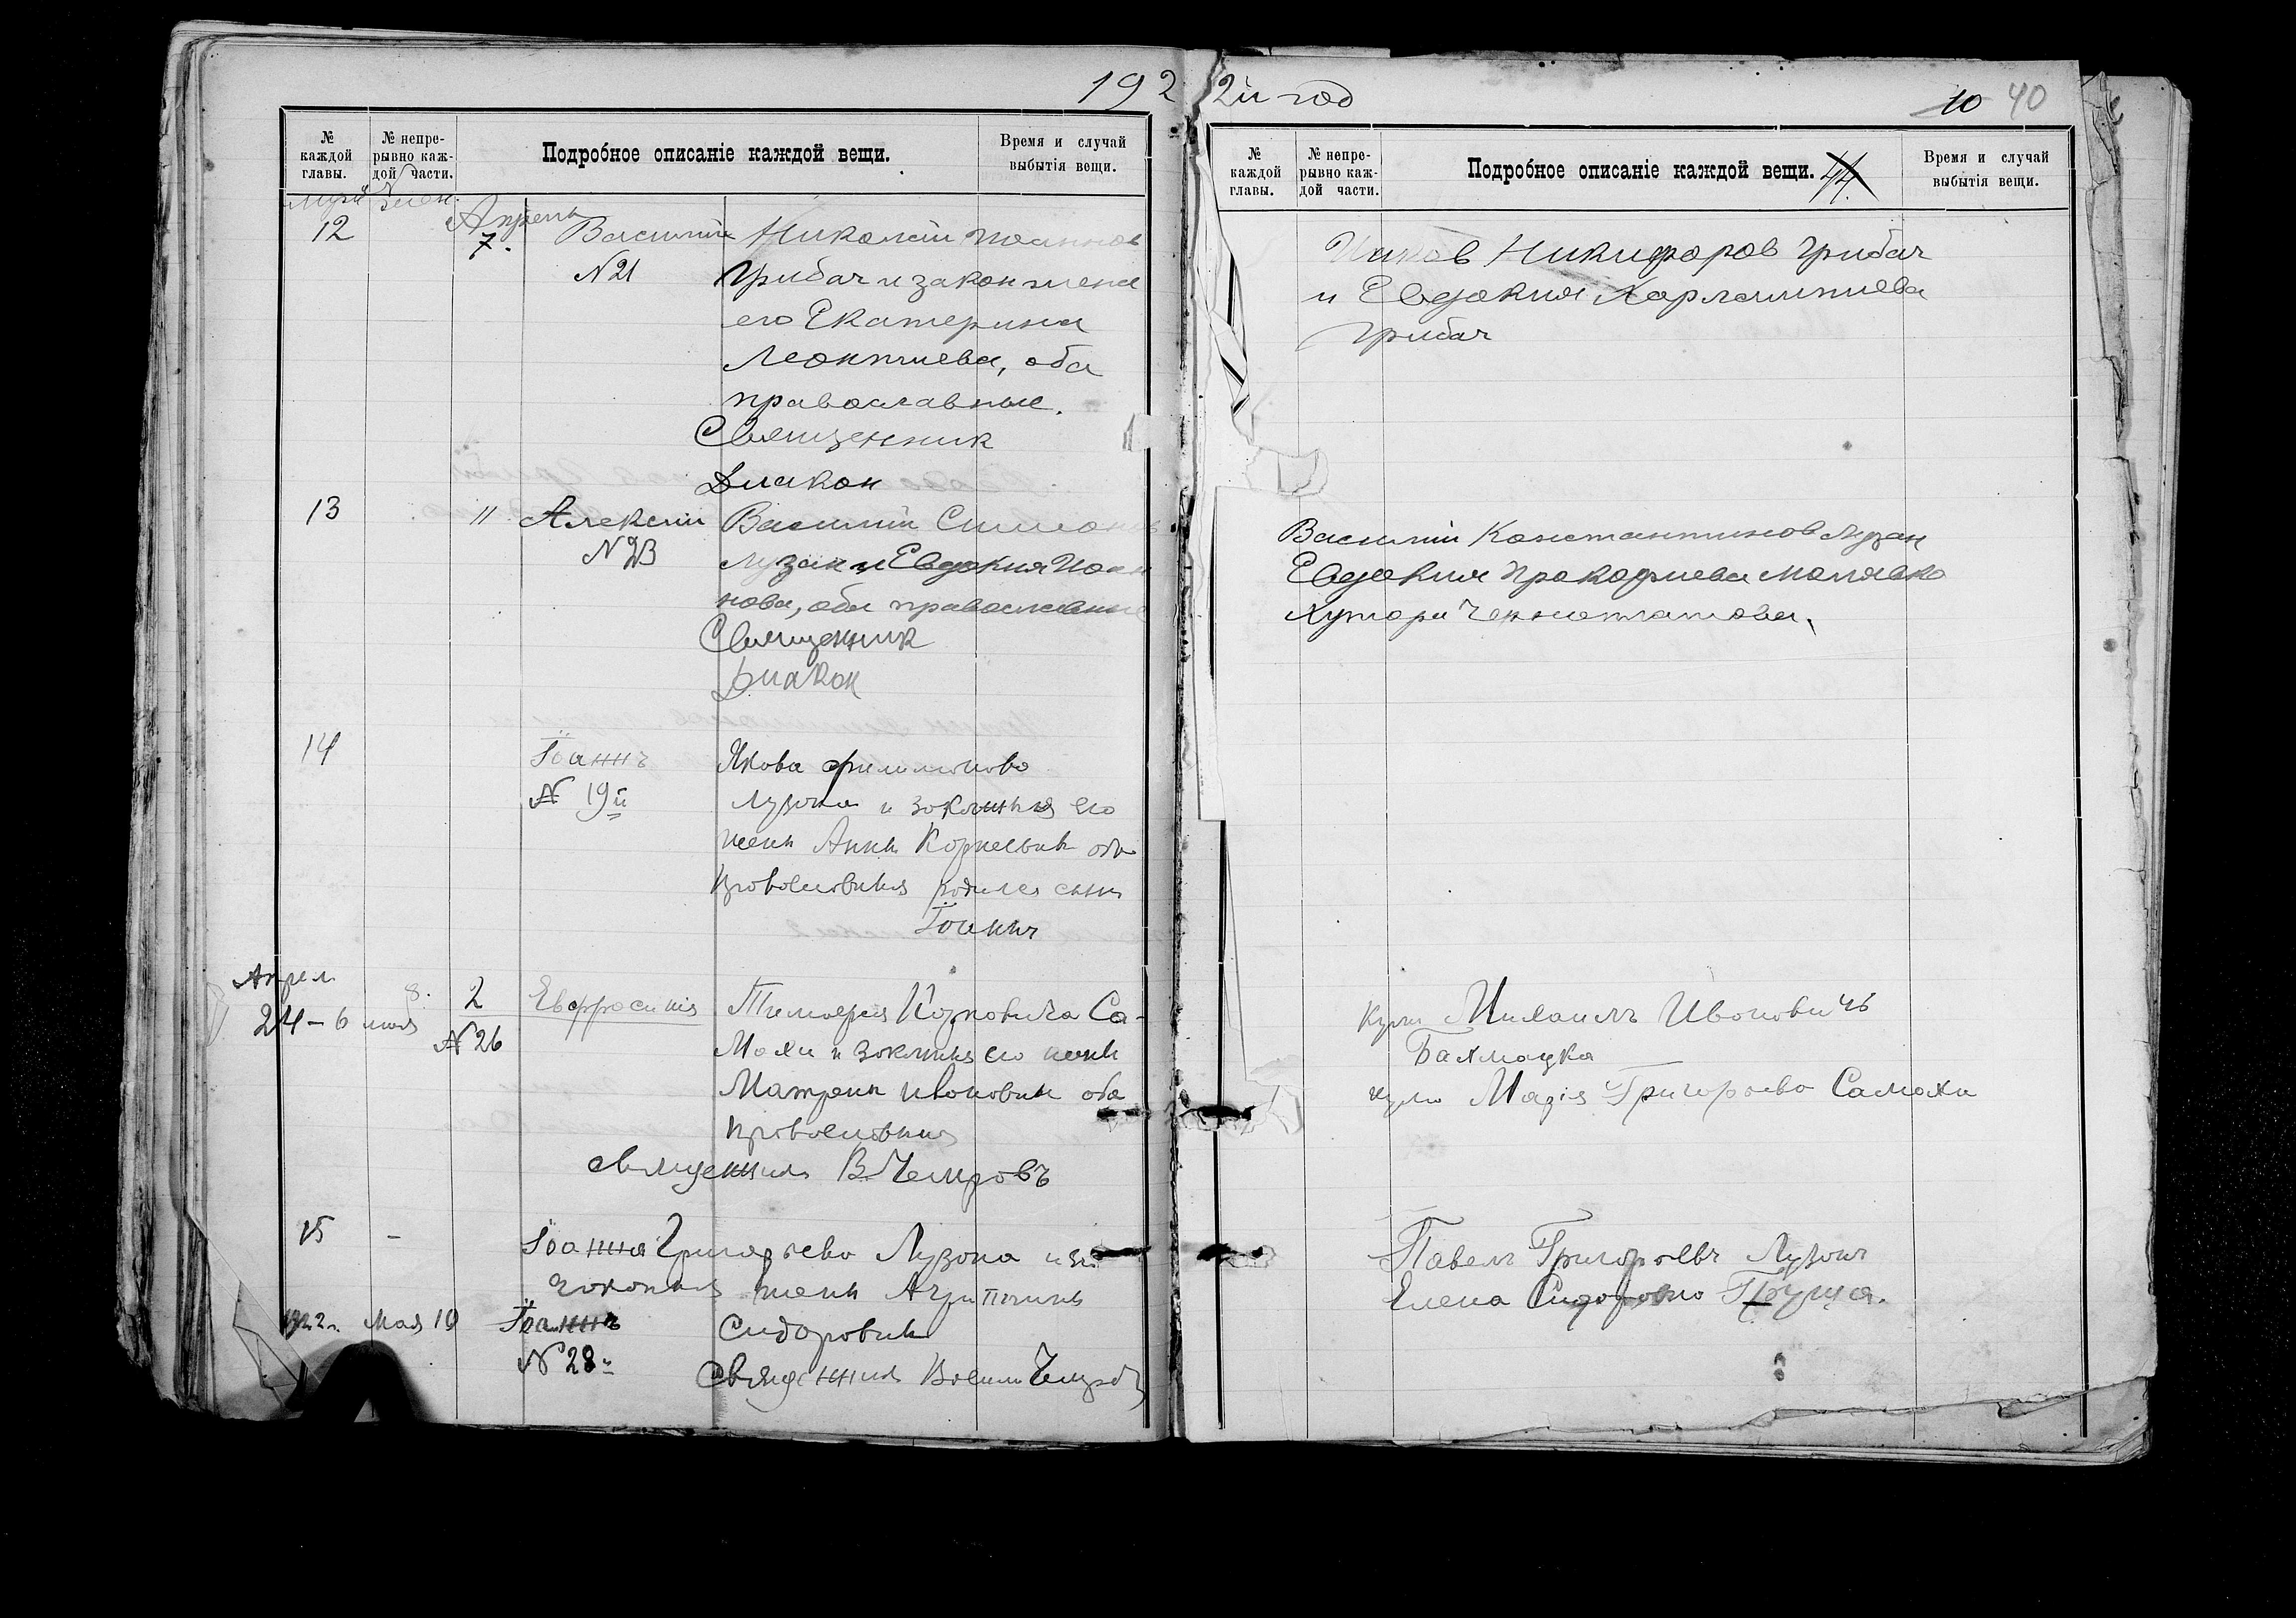 192 2й год
10 40
№ каждой главы.
№ непрерывно каждой части.
Подробное описаніе каждой вещи.
Время и случай выбытія вещи.
Муж. Жен.
Апрель
12 7. Василий Николай Иоаннов
№21 Грибач и закон жена
его Екатерина
Леонтиева, оба
православные.
Священник
Диакон
13 11 Алексий Василий Симонов
№ 23 Лузан и Евдокия Иоан
нова, оба православные
Священник
Диакон
14 Іоаннъ Якова Филимоново
№ 19й Лузана и законныя его
жены Анны Корнеевны оба
православныя родился сынъ
Іоаннъ
Апрел.
24 – 6 мая 8. 2 Евфросинія Тимофея Карповича Са-
№ 26 мохи и законныя его жены
Матрены Ивановны оба
православныя
священникъ В Чемровъ
15 – Іоанна Григорьево Лузана и его
законныя жены Агрипины
1922 г. Мая 19 Іоаннъ Сидоровны
№ 28й Священникъ
№ каждой главы.
№ непрерывно каждой части.
Подробное описаніе каждой вещи. 44
Время и случай выбытія вещи.
Иаков Никифоров Грибач
и Евдокия Харлампиева
Грибач
Василий Константинов Лузан
Евдокия Прокофиева Малявко
Хутора
Михаилъ Ивановичъ
Бахмацкий
Марія Григорьево Самоха
Павелъ Григорьевъ Лузанъ
Елена Сидоровно